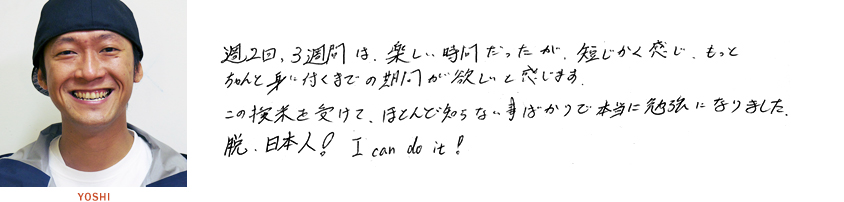 週2回、3週間は、楽しい時間だったが、短じかく感じ、もっと
ちゃんと身に付くまでの期間が欲しいと感じます。
この授業を受けて、ほとんど知らない事ばかりで本当に勉強になりました。
脱、日本人! I can do it!
YOSHI